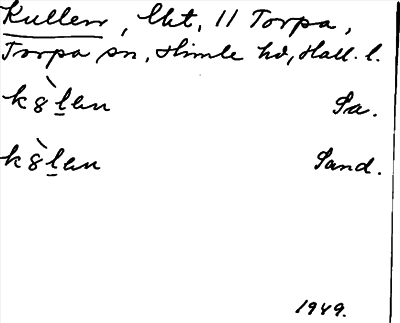 Kullen, lkt, 11 Torpa,
Torpa sn, Himle hd, Hall. l.
k8̀l̲en Sa.
k8̀l̲en Sand.
1949.